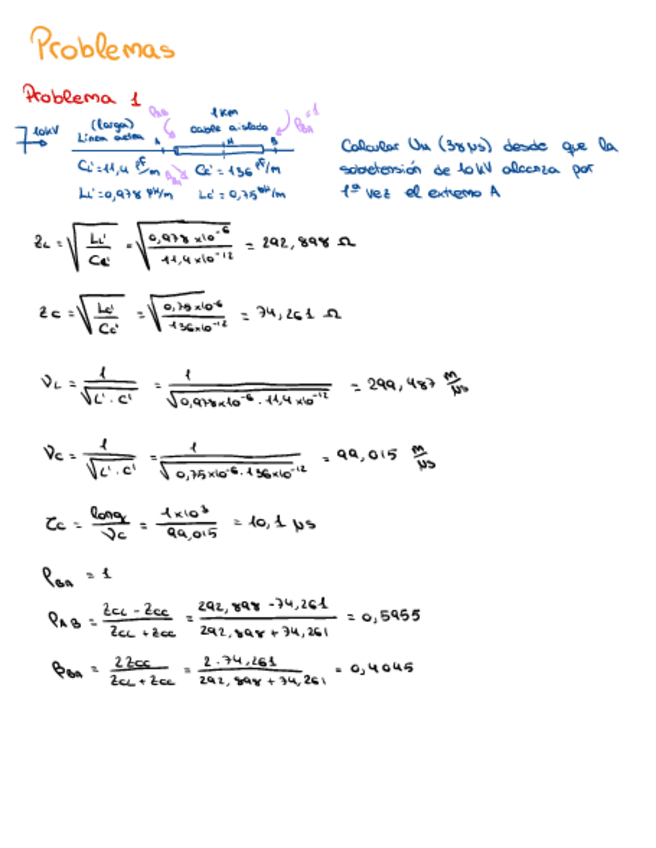 Problemas
Problema 1
1km
(larga) cable aislado ρBA=1
10kV Línea aérea A M B
CL'=11,4 pF/m Cc'=136 pF/m
LL'=0,978 μH/m Lc'=0,75 μH/m
Calcular UM (38μs) desde que la
sobretensión de 10kV alcanza por
1ª vez el extremo A
ZL = √(LL'/CL') = √(0,978x10^-6/11,4x10^-12) = 292,898 Ω
Zc = √(Lc'/Cc') = √(0,75x10^-6/136x10^-12) = 74,261 Ω
VL = 1/√(L'·C') = 1/√(0,978x10^-6·11,4x10^-12) = 299,487 m/μs
Vc = 1/√(L'·C') = 1/√(0,75x10^-6·136x10^-12) = 99,015 m/μs
τc = long/Vc = 1x10^3/99,015 = 10,1 μs
ρBA = 1
ρAB = (ZCL - ZCC)/(ZCL + ZCC) = (292,898 - 74,261)/(292,898 + 74,261) = 0,5955
βBA = 2ZCC/(ZCL + ZCC) = 2·74,261/(292,898 + 74,261) = 0,4045